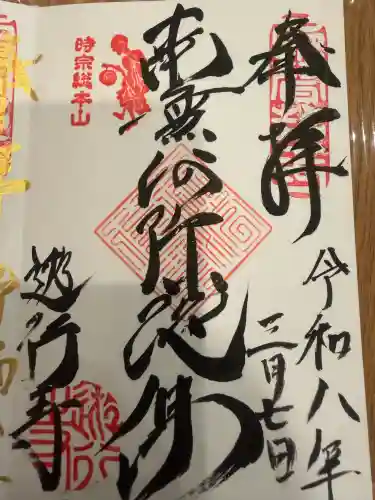 奉拝
令和八年
三月七日
南無阿弥陀仏
時宗総本山
遊行寺